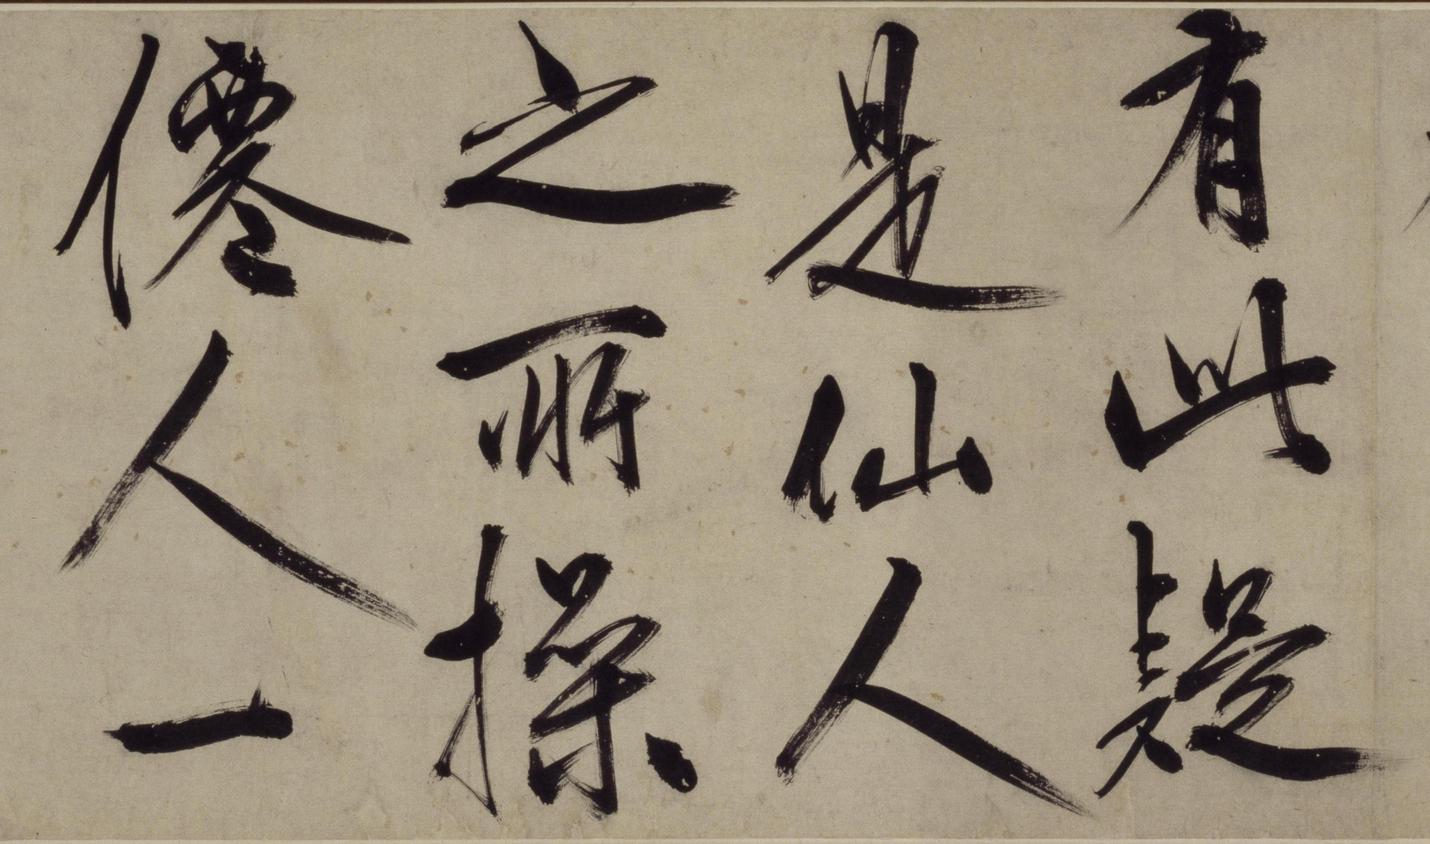 有此疑
是仙人
之所操
僊人一